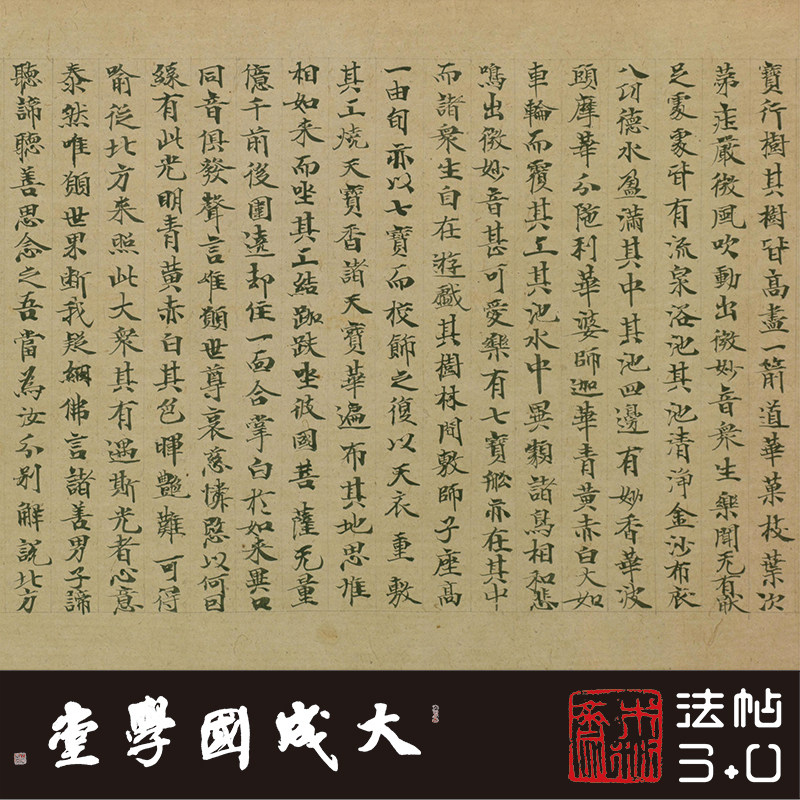 寶行樹其樹皆高盡一箭道華菓枝葉次
第莊嚴微風吹動出微妙音衆生樂聞无有猒
足處處皆有流泉浴池其池清淨金沙布底
八功德水盈滿其中其池四邊有妙香華波
頭摩華分陁利華婆師迦華青黃赤白大如
車輪而覆其上其池水中異類諸鳥相和悲
鳴出微妙音甚可愛樂有七寶舩亦在其中
而諸衆生自在遊戲其樹林間敷師子座高
一由旬亦以七寶而校飾之復以天衣重敷
其上燒天寶香諸天寶華遍布其地思惟
相如来而坐其上結跏趺坐彼國菩薩无量
億千前後圍遶却住一面合掌白於如来異口
同音俱發聲言唯願世尊哀慈憐愍以何因
緣有此光明青黃赤白其色暉艷難可得
喻從北方来照此大衆其有遇斯光者心意
泰然唯願世果断我疑網佛言諸善男子諦
聽諦聽善思念之吾當為汝分別解說北方
大成國學堂
法帖
3.0